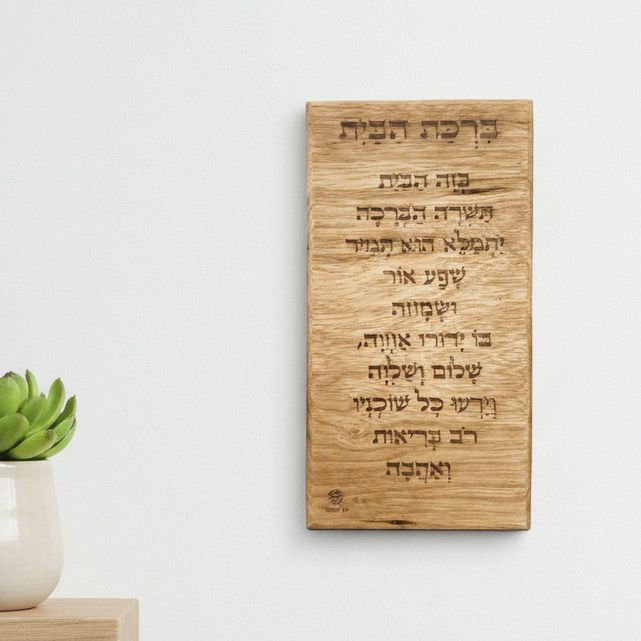 בִּרְכַּת הַבַּיִת
בָּזֶה הַבַּיִת
תִּשְׁרֶה הַבְּרָכָה
יִתְמַלֵּא הוּא תָּמִיד
שֶׁפַע אוֹר
וְשִׂמְחָה
בּוֹ יָדוּרוּ אַחֲוָה,
שָׁלוֹם וְשַׁלְוָה
וְיֵדְעוּ כָּל שׁוֹכְנָיו
רֹב בְּרִיאוּת
וְאַהֲבָה